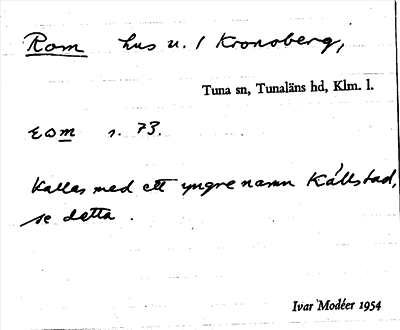 Rom hus u. / Kronoberg,
Tuna sn, Tunaläns hd, Klm. l.
EOM s. 73.
Kallas med ett yngre namn Källstad,
se detta.
Ivar Modéer 1954